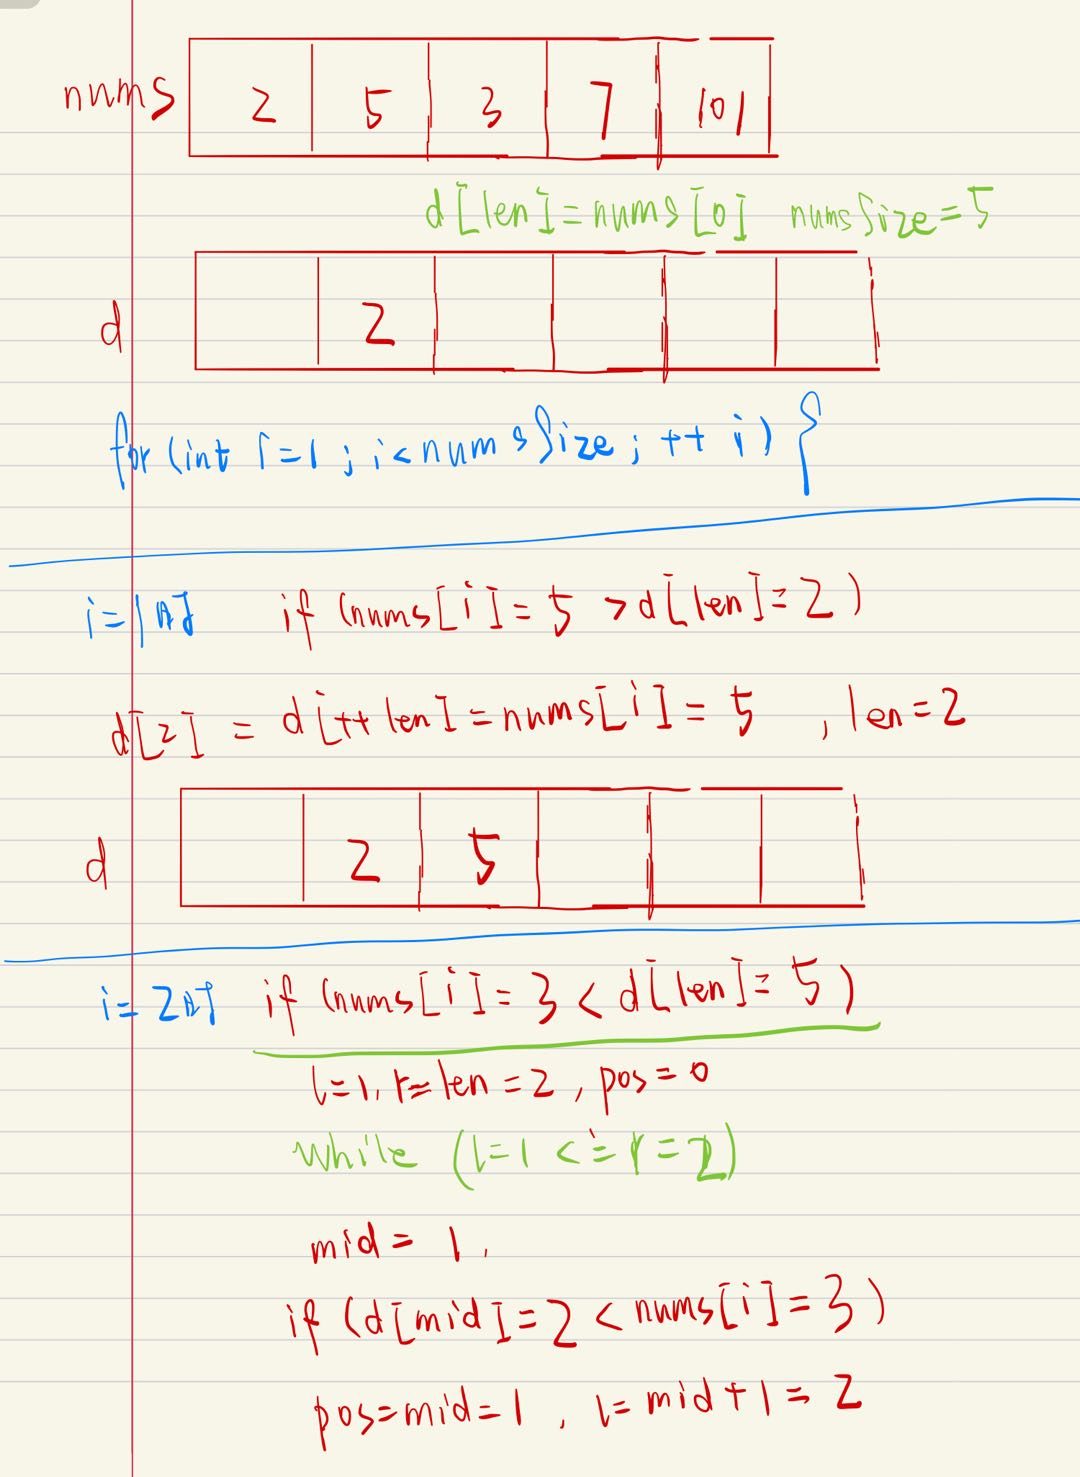 nums 2 5 3 7 101
d[len]=nums[0] numsSize=5
d 2
for(int i=1; i<numsSize; ++i) {
i=1时 if (nums[i]=5 >d[len]=2)
d[2] = d[++len]=nums[i]=5 , len=2
d 2 5
i=2时 if (nums[i]=3 < d[len]=5)
l=1, r=len=2, pos=0
while (l=1 <= r=2)
mid = 1,
if (d[mid]=2 < nums[i]=3)
pos=mid=1, l=mid+1=2